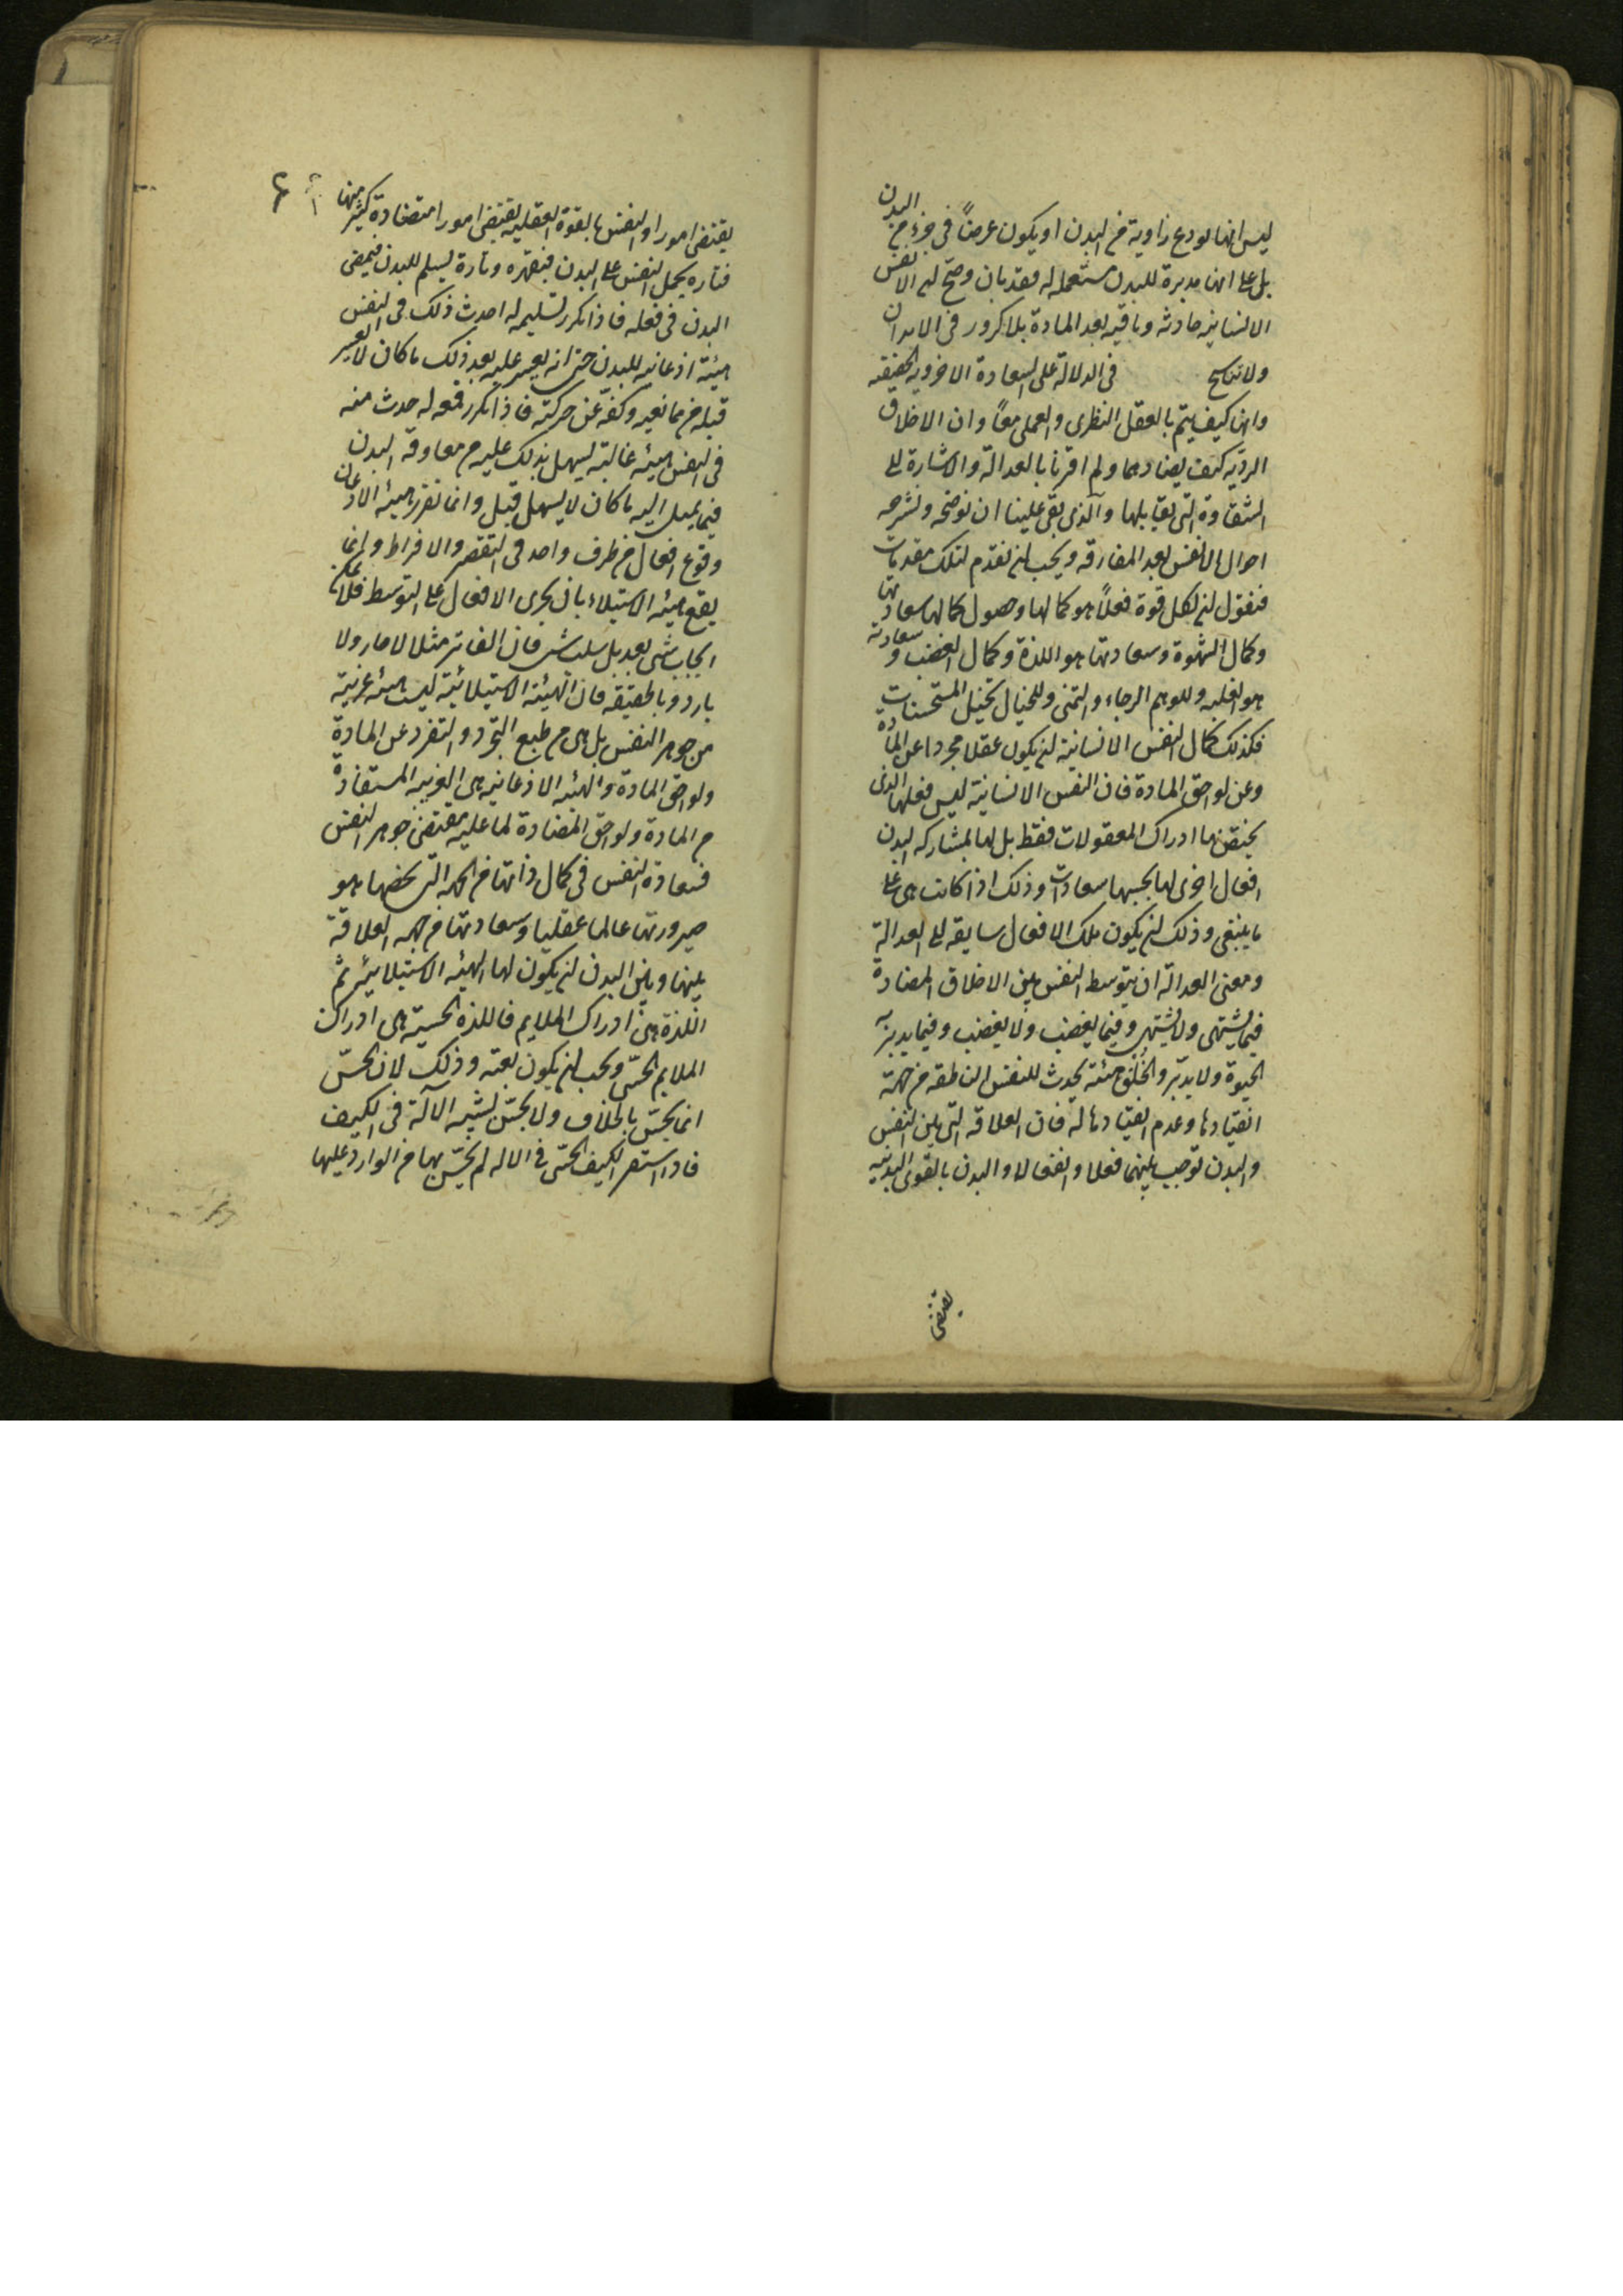 ليس انها تودع زاوية من البدن او يكون عرضاً في جزء من البدن
بل على انها مدبرة للبدن مستعملة له فقد بان وصح ان الانفس
الانسانية حادثة وباقية بعد المادة بلا كرور في الابدان
ولا تناسخ في الدلالة على السعادة الاخروية الحقيقية
وانها كيف يتم بالعقل النظرى والعملى معاً وان الاخلاق
الردية كيف يضادهما ولم اقرنا بالعدالة والاشارة الى
الشقاوة التى تقابلها والذى بقى علينا ان نوضحه ونشرحه
احوال الانفس بعد المفارقة ويجب ان نقدم لتلك مقدمات
فنقول ان لكل قوة فعلاً هو كمالها وحصول كمالها سعادتها
وكمال الشهوة وسعادتها هو اللذة وكمال الغضب وسعادته
هو الغلبة وللوهم الرجاء والتمنى وللخيال تخيل المستحسنات
فكذلك كمال النفس الانسانية ان يكون عقلا مجردا عن المادة
وعن لواحق المادة فان النفس الانسانية ليس فعلها الذى
يختص بها ادراك المعقولات فقط بل لها بمشاركة البدن
افعال اخرى لها بحسبها سعادات وذلك اذا كانت هى على
ما ينبغى وذلك ان يكون تلك الافعال سايقة الى العدالة
ومعنى العدالة ان يتوسط النفس بين الاخلاق المضادة
فيما يشتهى ولا يشتهى وفيما يغضب ولا يغضب وفيما يدبر به
الحيوة ولا يدبر والخلق هيئة يحدث للنفس الناطقة من جهة
انقيادها وعدم انقيادها له فان العلاقة التى بين النفس
والبدن توجب بينهما فعلا وانفعالا والبدن بالقوى البدنية
يقتضى
يقتضى امورا والنفس بالقوة العقلية يقتضى امورا متضادة كثير منها
فتاره يحمل النفس على البدن فيقهره وتارة يسلم للبدن فيمضى
البدن في فعله فاذا تكرر تسليمه له احدث ذلك في النفس
هيئة اذعانية للبدن حتى انه يعسر عليه بعد ذلك ما كان لا يعسر
قبله من ممانعيه وكفه عن حركته فاذا تكرر قمعه له حدث منه
في النفس هيئة غالبة يسهل بذلك عليه من معاوقة البدن
فيما يميل اليه ما كان لا يسهل قبل وانما تقرر هيئة الاذعان
وقوع افعال من طرف واحد في التقصر والافراط وانما
يقع هيئة الاستيلاء بان يجرى الافعال على التوسط فلا يمكن
ايجاب شى بعد بل سلب شى فان الفاتر مثلا لا حار ولا
بارد وبالحقيقة فان الهيئة الاستيلائية ليست هيئة غريبة
من جوهر النفس بل هى من طبع التجرد والتفرد عن المادة
ولواحق المادة والهيئة الاذعانية هى الغريبة المستفادة
من المادة ولواحق المضادة لما عليه مقتضى جوهر النفس
فسعادة النفس في كمال ذاتها من الجهة التى تخصها هو
صيرورتها عالما عقليا وسعادتها من جهة العلاقة
بينها وبين البدن ان يكون لها الهيئة الاستيلائية ثم
اللذة هى ادراك الملايم فاللذة الحسية هى ادراك
الملايم الحسى ويجب ان يكون بغتة وذلك لان الحس
انما يحس بالخلاف ولا يحس بشبه الآلة في الكيف
فاذا استقر الكيف الحسى في الاله لم يحس بها من الوارد عليها